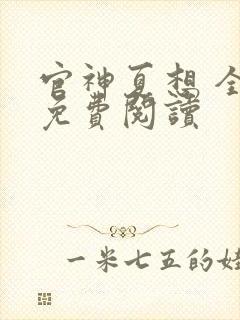 官神夏想 全
免費閱讀
一米七五的娃